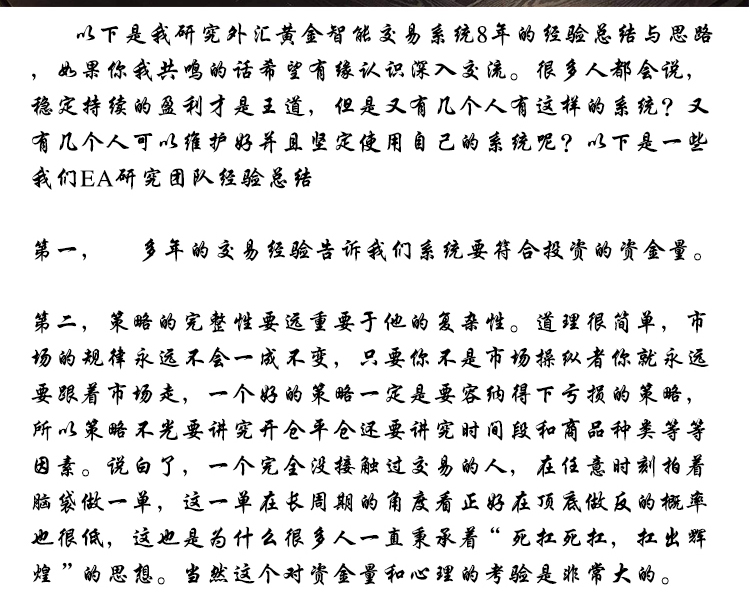 以下是我研究外汇黄金智能交易系统8年的经验总结与思路
，如果你我共鸣的话希望有缘认识深入交流。很多人都会说，
稳定持续的盈利才是王道，但是又有几个人有这样的系统？又
有几个人可以维护好并且坚定使用自己的系统呢？以下是一些
我们EA研究团队经验总结
第一，　多年的交易经验告诉我们系统要符合投资的资金量。
第二，策略的完整性要远重要于他的复杂性。道理很简单，市
场的规律永远不会一成不变，只要你不是市场操纵者你就永远
要跟着市场走，一个好的策略一定是要容纳得下亏损的策略，
所以策略不光要讲究开仓平仓还要讲究时间段和商品种类等等
因素。说白了，一个完全没接触过交易的人，在任意时刻拍着
脑袋做一单，这一单在长周期的角度看正好在顶底做反的概率
也很低，这也是为什么很多人一直秉承着“死扛死扛，扛出辉
煌”的思想。当然这个对资金量和心理的考验是非常大的。